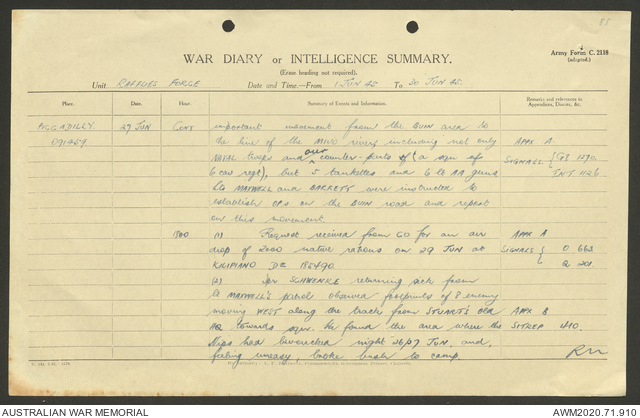 88
Army Form C. 2118
(adapted.)
WAR DIARY or INTELLIGENCE SUMMARY.
(Erase heading not required).
Unit RAFFLES FORCE Date and Time.—From 1 JUN 45 To 30 JUN 45.
Place. Date. Hour. Summary of Events and Information. Remarks and references to Appendices, Diaries, &c.
PICCADILLY. 29 JUN Cont important movement from the BUIN area to
091459 the line of the MIVO river including not only APPX A
NAVAL troops and our counter-parts of (a sqn of SIGNALS { GS 1270
6 cav regt), but 5 tankettes and 6 lt AA guns INT 1126
Lts MAXWELL and BARRETT were instructed to
establish OPs on the BUIN road and report
on this movement.
1800 (1) Request received from GO for an air APPX A
drop of 2000 native rations on 29 JUN at SIGNALS { O 663
KILIPIANO DZ 185490. Q 201.
(2) Spr SCHWENKE returning sick from
Lt MAXWELL'S patrol observed footprints of 8 enemy
moving WEST along the track from STUART'S old APPX B
HQ towards He found the area where the SITREP 410.
Nips had bivouacked night 26/27 JUN and,
feeling uneasy, broke bush to camp.
AUSTRALIAN WAR MEMORIAL
AWM2020.71.910